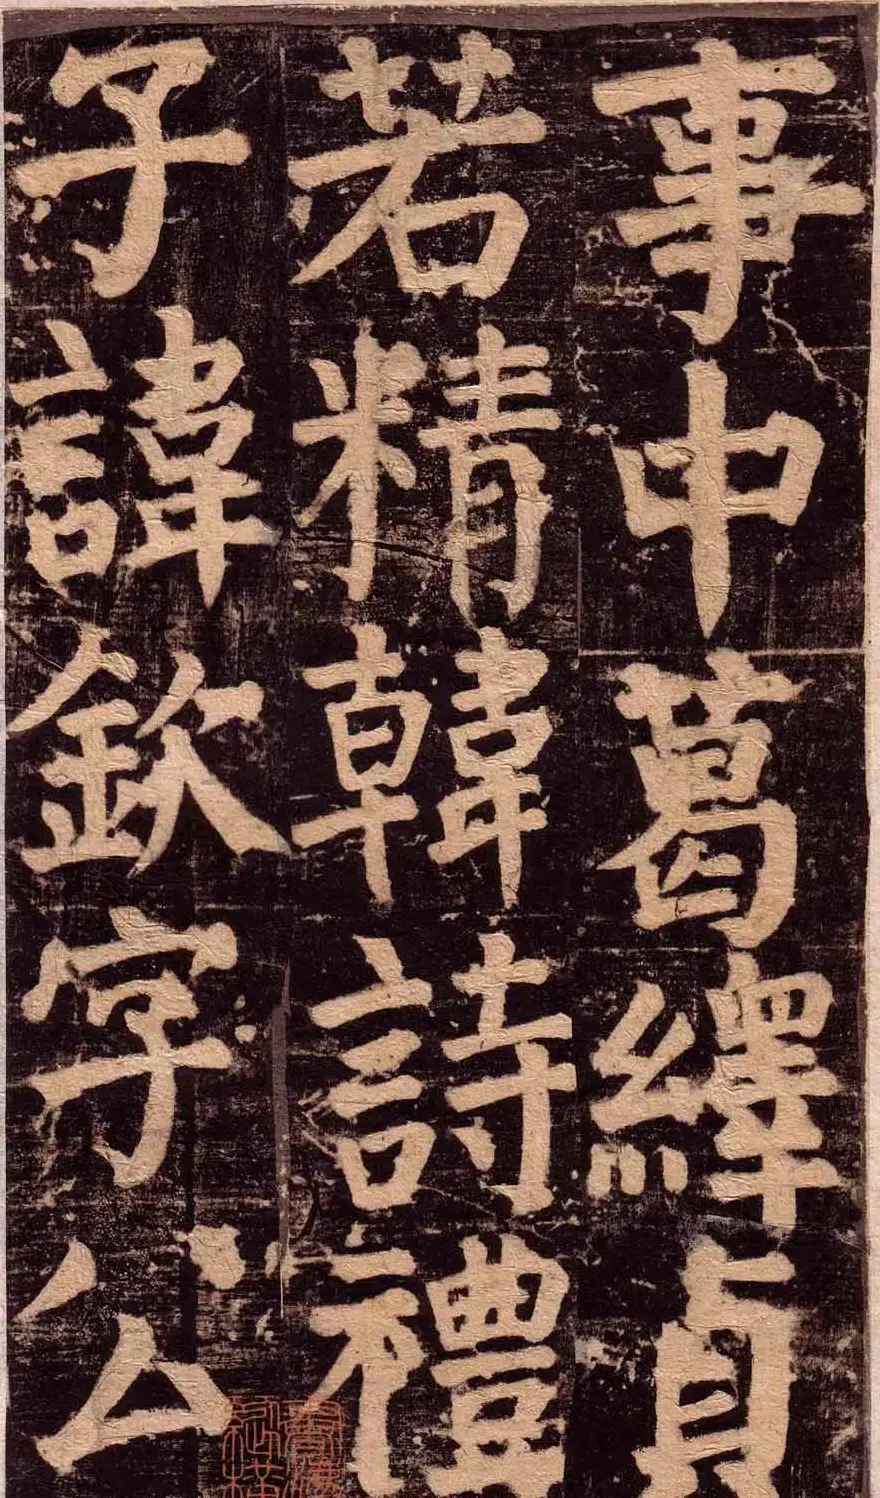 事中葛繹貞
若精韓詩禮
子諱欽字公